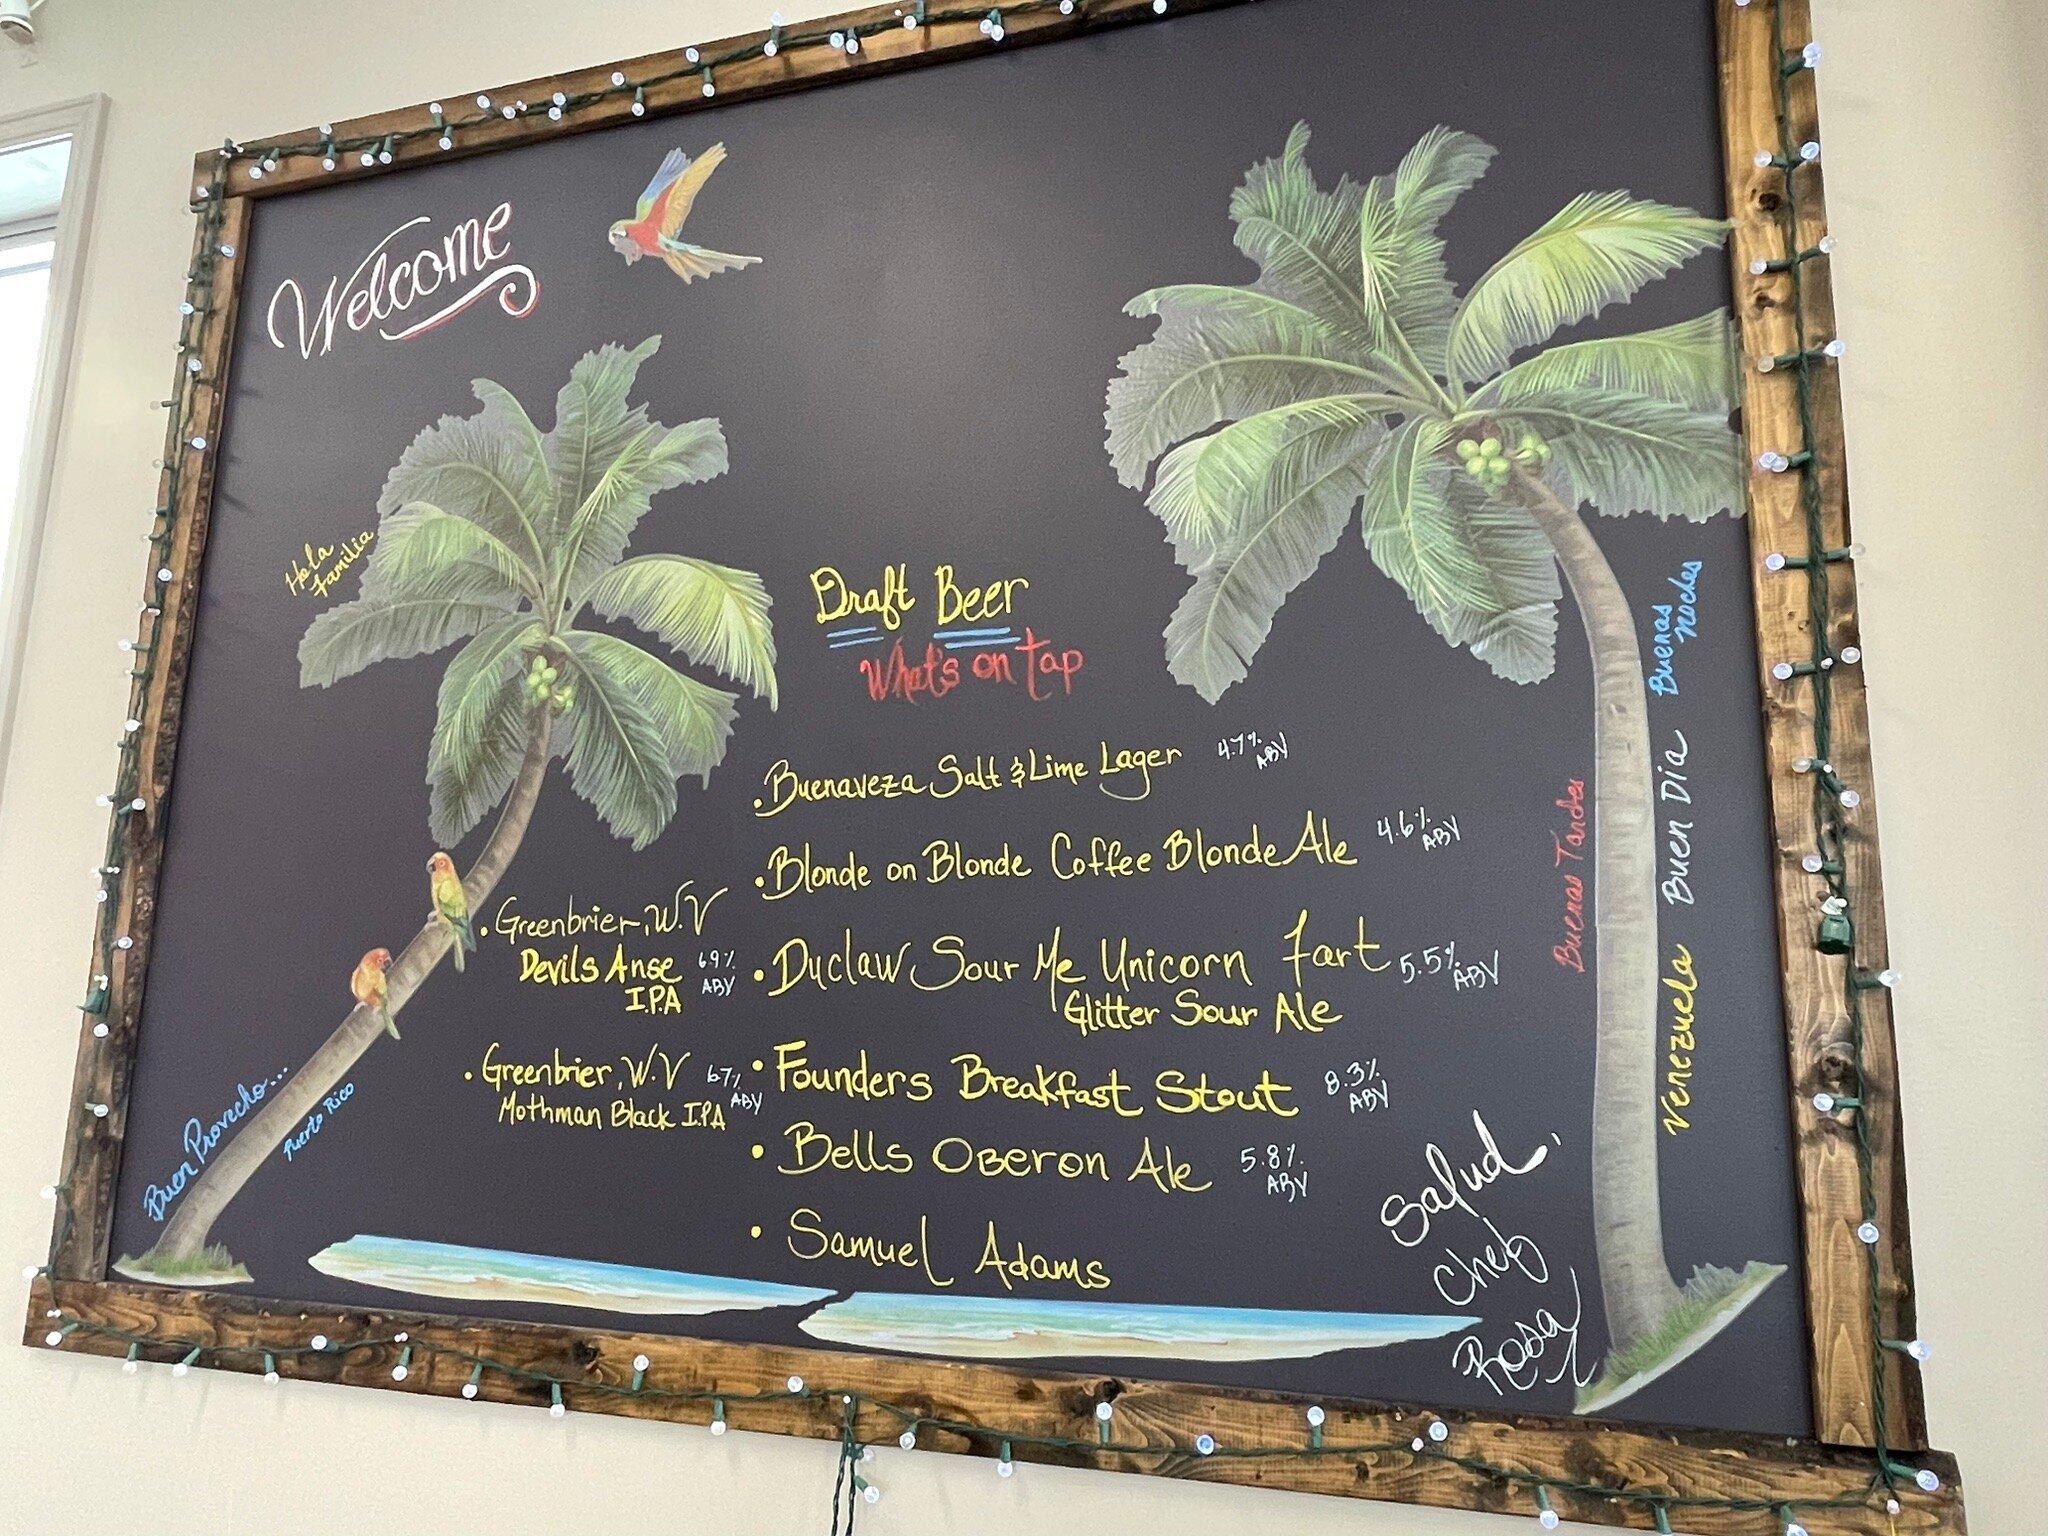 Welcome
Hola
Familia
Draft Beer
What's on tap
• Buenaveza Salt & Lime Lager 4.7% ABV
• Blonde on Blonde Coffee Blonde Ale 4.6% ABV
• Duclaw Sour Me Unicorn Fart 5.5% ABV
Glitter Sour Ale
• Founders Breakfast Stout 8.3% ABV
• Bells Oberon Ale 5.8% ABV
• Samuel Adams
• Greenbrier, W.V
Devils Anse 6.9% ABV
I.P.A
• Greenbrier, W.V 6.7% ABV
Mothman Black I.P.A
Buen Provecho...
Puerto Rico
Buenas Tardes
Buenas
Noches
Buen Dia
Venezuela
Salud,
Chef
Rosa